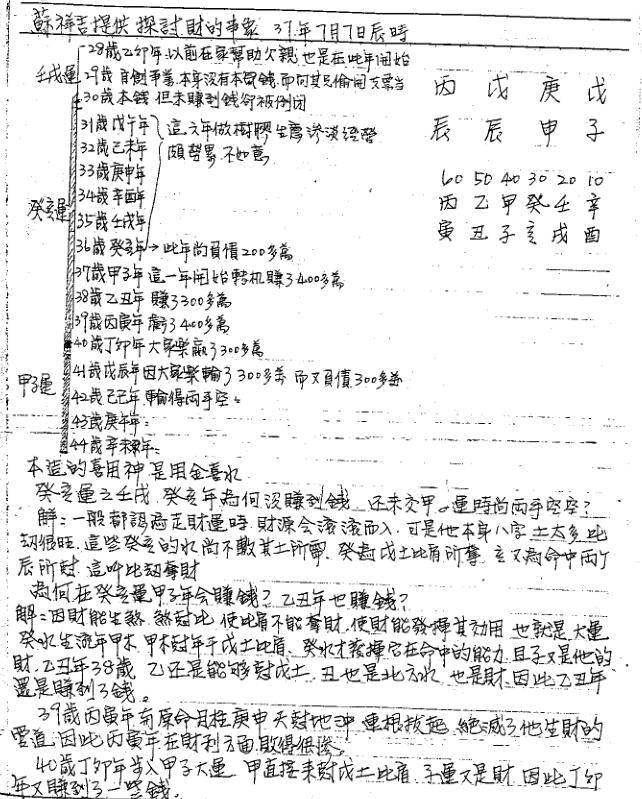 蘇祥吉提供 探討財的事象 37年7月7日辰時
壬戌運
28歲乙卯年以前在家幫助父親也是在此年開始
29歲自創事業.本身沒有本銀錢.而向其兄偷開支票当
30歲本錢 但未賺到錢卻被倒闭
丙 戊 庚 戊
辰 辰 申 子
60 50 40 30 20 10
丙 乙 甲 癸 壬 辛
寅 丑 子 亥 戌 酉
癸亥運
31歲戊午年 這六年做樹膠生意慘淡經營
32歲己未年 頗勞累 不如意
33歲庚申年
34歲辛酉年
35歲壬戌年
36歲癸亥年→此年尚負債200多萬
37歲甲子年 這一年開始轉机賺了400多萬
38歲乙丑年 賺了300多萬
39歲丙寅年 虧了400多萬
40歲丁卯年大家樂贏了300多萬
甲子運
41歲戊辰年因大家樂輸了300多萬 而又負債300多萬
42歲己巳年 輸得兩手空=
43歲庚午年=
44歲辛未年=
本造的喜用神是用金喜水
癸亥運之壬戌 癸亥年為何沒賺到錢 还未交甲 運時尚兩手空空?
解=一般都認為走財運時.財源会滾滾而入.可是他本身八字土太多比
劫很旺.這些癸亥的水尚不敷其土所需.癸為戊土比肩所奪.亥又為命中兩丁
辰所尅.這叫比劫奪財
為何在癸亥運甲子年会賺錢?乙丑年也賺錢?
解=因財能生煞.煞尅比.使比肩不能奪財.使財能發揮其功用 也就是大運
癸水生流年甲木.甲木尅年干戊土比肩.癸水才發揮它在命中的能力.且子又是他的
財.乙丑年38歲 乙还是能夠尅戊土.丑也是北方水 也是財.因此乙丑年
還是賺到了錢。
39歲丙寅年前原命月柱庚申天尅地沖 連根拔起.絕滅了他生財的
管道.因此丙寅年在財利方面.敗得很慘。
40歲丁卯年步入甲子大運 甲直接來尅戊土比肩.子運又是財.因此丁卯
年又賺到了一些錢.